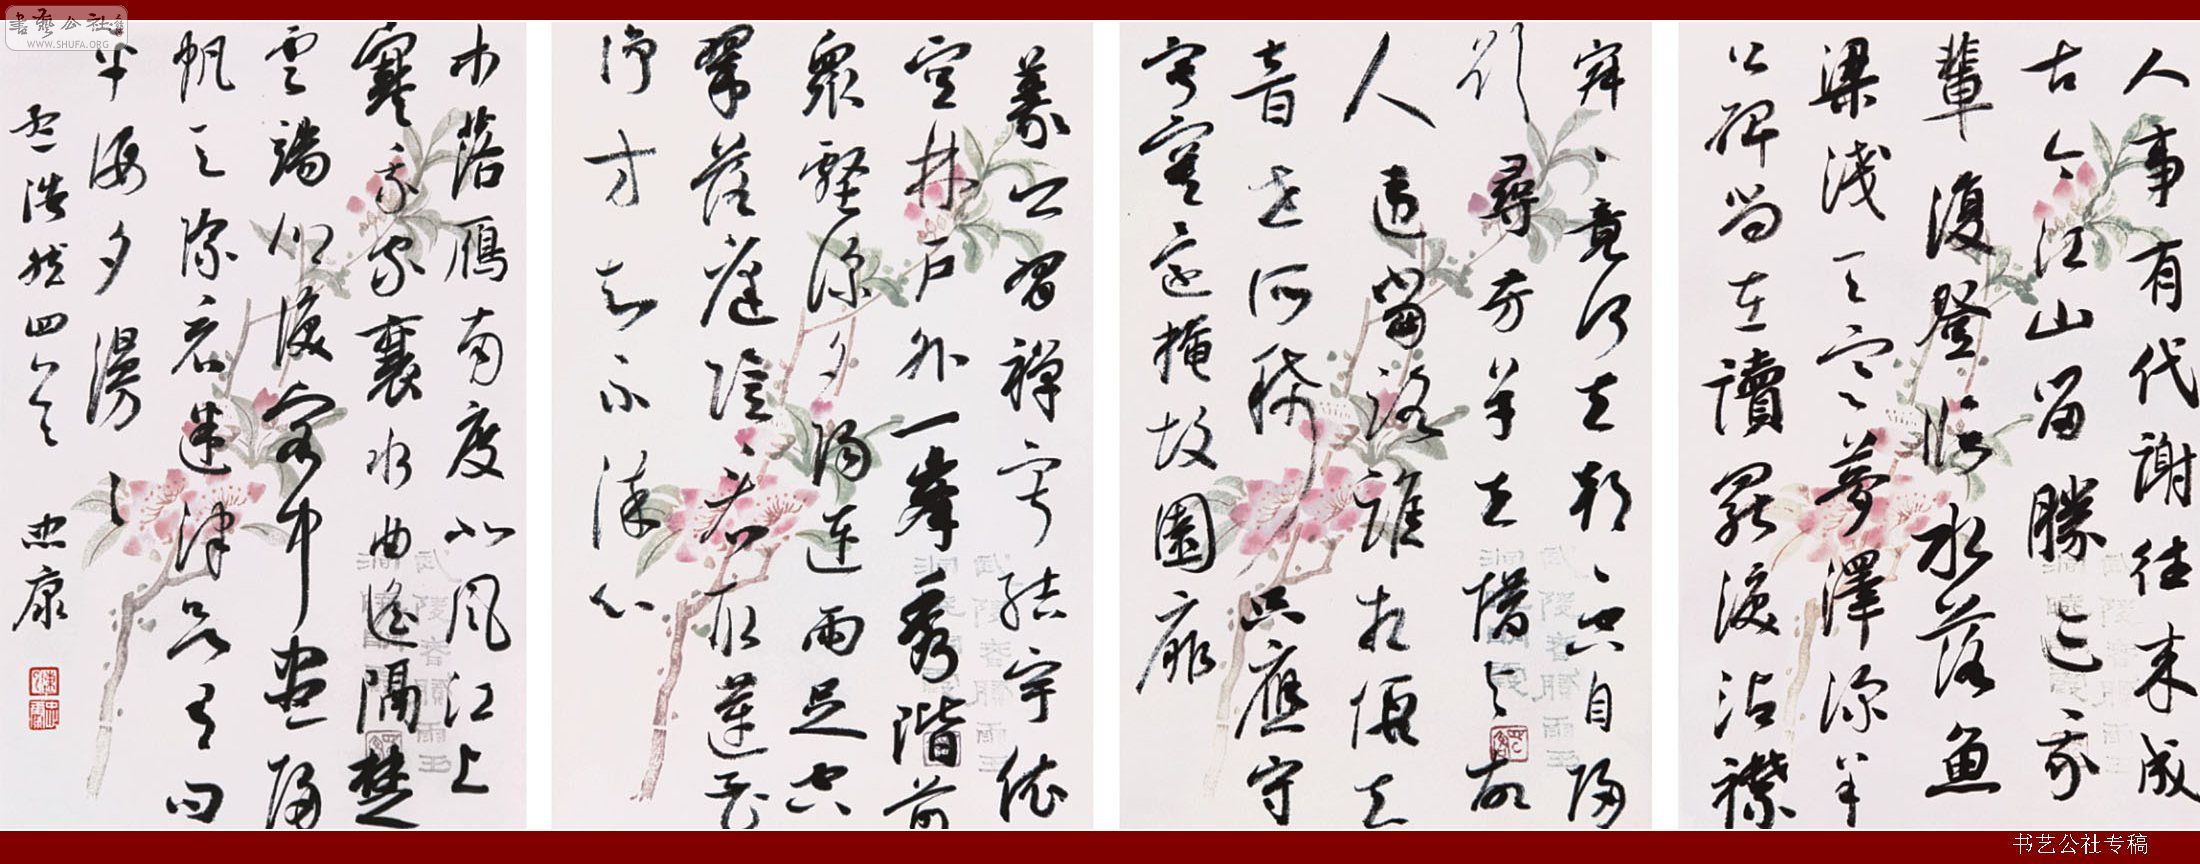 人事有代謝往来成
古今江山留勝迹我
輩復登临水落魚
梁淺天寒夢澤深羊
公碑尚在讀罷淚沾襟
寂、竟何待朝、空自歸
欲尋芳草去惜與故
人違當路誰相假知
音世所稀只應守
寂寞還掩故園扉
義公習禪寂結宇依
空林戶外一峰秀階前
眾壑深夕陽連雨足空
翠落庭陰看取蓮花
淨方知不染心
木落鴈南度北風江上
寒我家襄水曲遙隔楚
雲端鄉淚客中盡歸
帆天際看迷津欲有問
平海夕漫々
孟浩然四首 忠康
書艺公社
WWW.SHUFA.ORG
书艺公社专稿